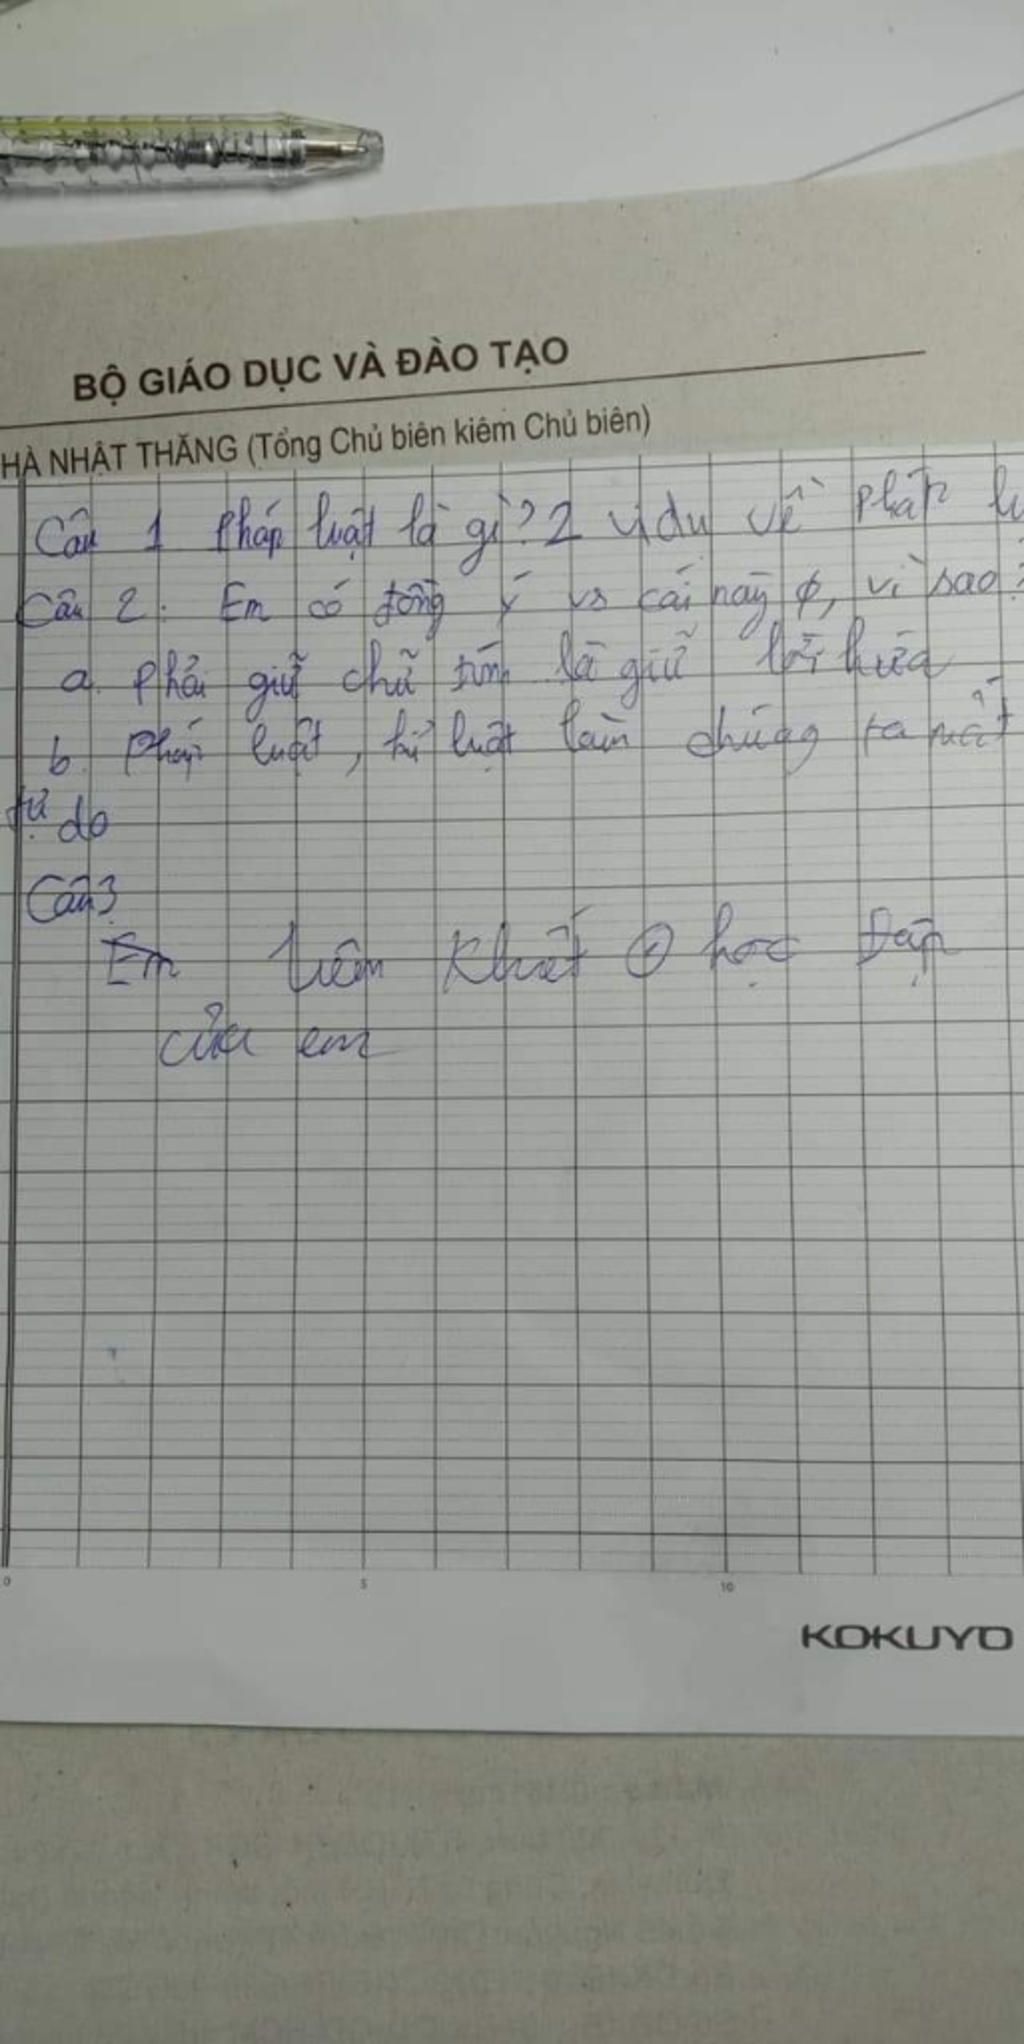 BỘ GIÁO DỤC VÀ ĐÀO TẠO
HÀ NHẬT THĂNG (Tổng Chủ biên kiêm Chủ biên)
Câu 1 Pháp luật là gì? 2 ví dụ về pháp
Câu 2. Em có đồng ý vs cái này ϕ, vì sao?
a. Phải giữ chữ tín là giữ lời hứa
b. Pháp luật, kỉ luật làm chúng ta mất
tự do
Câu 3
Em liêm khiết học tập
của em
0 5 10
KOKUYO